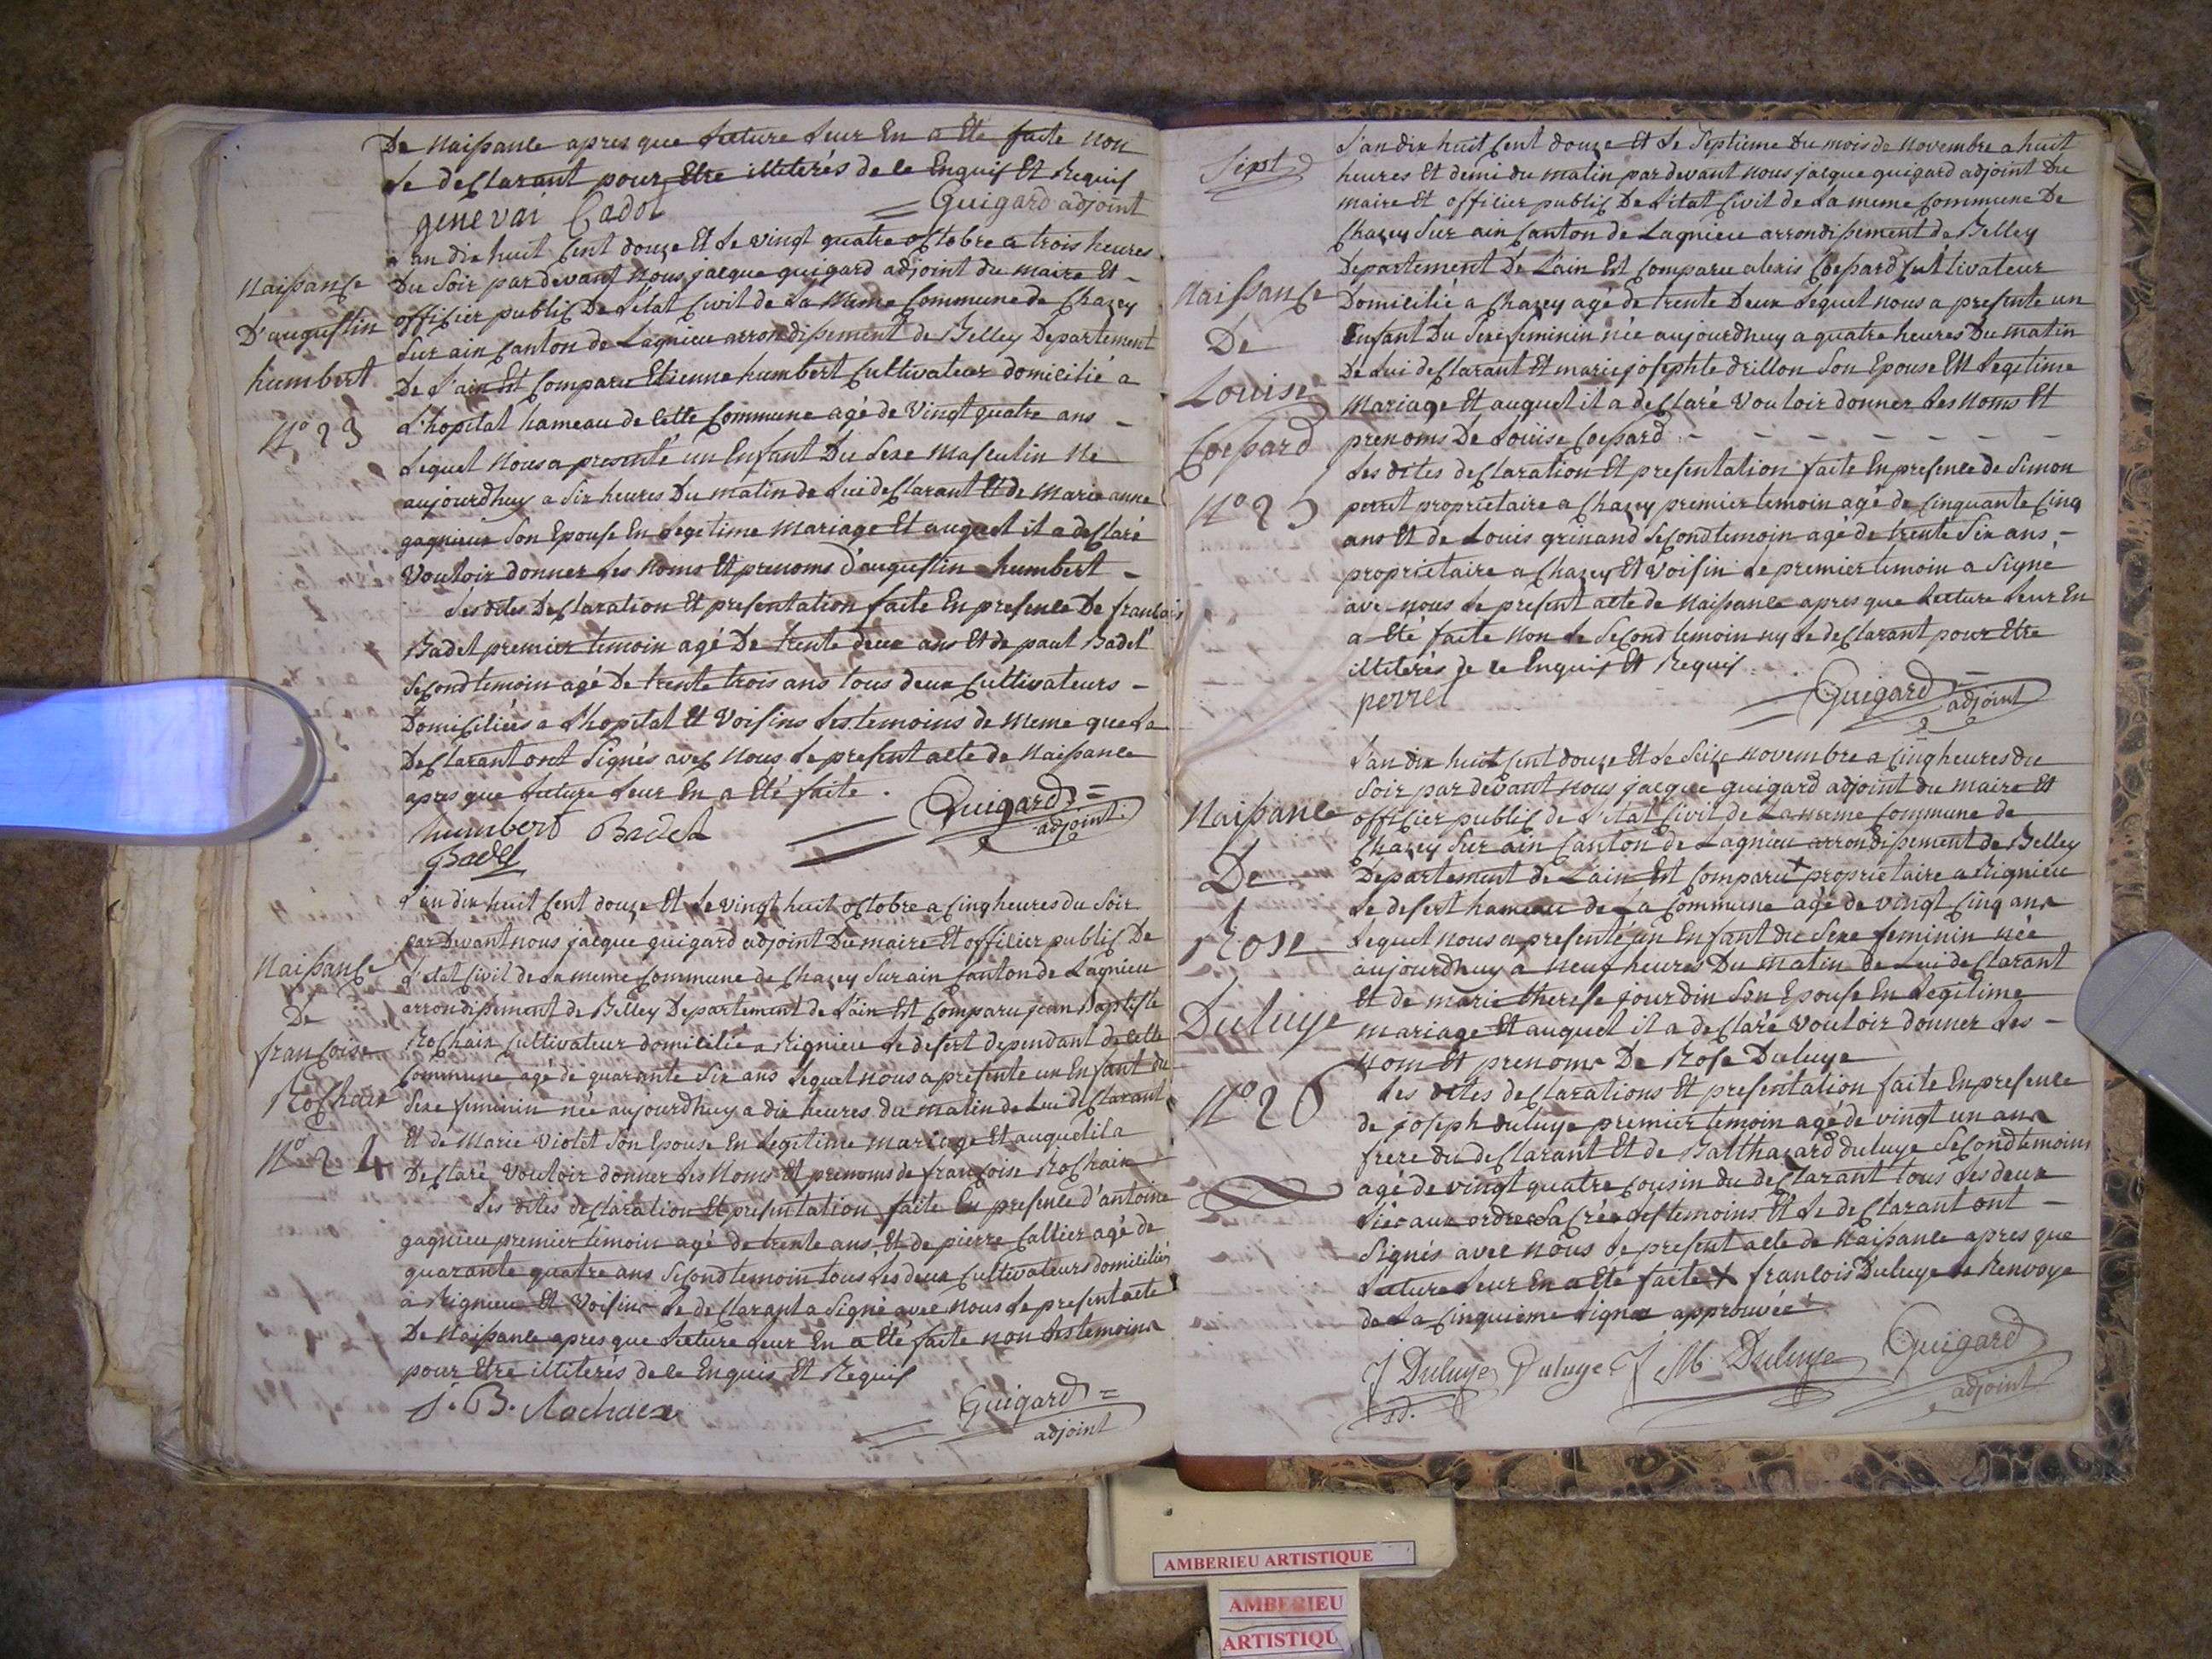 De Naissance apres que lecture leur En a Eté faite non
le declarant pour Etre illiterés de le Enquis Et Requis
genevai Cadot
Guigard adjoint
Naissance
D'augustin
humbert
N° 23
L'an dix huit Cent douze Et le vingt quatre octobre a trois heures
Du Soir par devant Nous jacque guigard adjoint du maire Et -
officier public De L'état Civil de La Meme Commune de Chazey
Sur ain Canton de Lagnieu arrondissement de Belley Departement
De L'ain Est Comparu Etienne humbert Cultivateur domicilié a
L'hopital hameau de Cette Commune agé de Vingt quatre ans -
Lequel Nous a presenté un Enfant Du Sexe Masculin Né
aujourdhuy a Six heures Du matin de Lui declarant Et de Marie anne
gagnieur Son Epouse En Legitime Mariage Et auquel il a declaré
Vouloir donner les Noms Et prenoms d'augustin humbert -
Les dites Declaration Et presentation faite En presence De francois
Badet premier temoin agé De trente deux ans Et de paul Badet
Second temoin agé De trente trois ans tous deux Cultivateurs -
Domiciliées a Lhopital Et Voisins Les temoins de meme que Le
Declarant ont Signés avec Nous Le present acte de Naissance
apres que Lecture Leur En a Eté faite .
humbert Badet
Guigard =
adjoint
Badet
Naissance
De
francoise
Rochaix
N° 24
L'an dix huit Cent douze Et Le vingt huit octobre a Cinq heures du Soir
par Devant nous jacque guigard adjoint Du maire Et officier public De
L'etat Civil de La meme Commune de Chazey Sur ain Canton de Lagnieu
arrondissement de Belley Departement de L'ain Est Comparu jean Baptiste
Rochaix Cultivateur domicilié a Rignieu Le desert dependant de Cette
Commune agé de quarante Six ans Lequel nous a presenté un Enfant du
Sexe feminin née aujourdhuy a dix heures du matin de Lui declarant
Et de Marie Violet Son Epouse En Legitime mariage Et auquel il a
Declaré Vouloir donner Les Noms Et prenoms de francoise Rochaix
Les dites declaration Et presentation faite En presence d'antoine
gagnieu premier temoin agé de trente ans, Et de pierre Callier agé de
quarante quatre ans Second temoin tous Les deux Cultivateurs domiciliés
a Rignieu Et Voisins Le declarant a Signé avec nous Le present acte
De Naissance apres que Lecture Leur En a Eté faite non Les temoins
pour Etre illiterés de le Enquis Et Requis
J. B. Rochaix
Guigard =
adjoint
Sept
Naissance
De
Louise
Coessard
N° 25
L'an dix huit Cent douze Et Le Septieme Du mois de Novembre a huit
heures Et demi du matin par devant nous jacque guigard adjoint Du
maire Et officier public De L'etat Civil de La meme Commune De
Chazey Sur ain Canton de Lagnieu arrondissement de Belley
Departement De L'ain Est Comparu alexis Coessard Cultivateur
Domicilié a Chazey agé de trente Deux Lequel nous a presente un
Enfant Du Sexe feminin née aujourdhuy a quatre heures Du matin
De Lui declarant Et marie josephte drillon Son Epouse En Legitime
Mariage Et auquel il a declaré Vouloir donner Les Noms Et
prenoms De Louise Coessard - - - - - - - -
Les dites declaration Et presentation faite En presence de Simon
perret proprietaire a Chazey premier temoin agé de Cinquante Cinq
ans Et de Louis grinand Second temoin agé de trente Six ans, -
proprietaire a Chazey Et Voisin Le premier temoin a Signé
avec nous Le present acte de Naissance apres que Lecture Leur En
a Eté faite Non Le Second temoin ny Le declarant pour Etre
illiterés de le Enquis Et Requis .
perret
Guigard =
adjoint
Naissance
De
Rose
Duluye
N° 26
L'an dix huit Cent douze Et Le Seize novembre a Cinq heures du
Soir par devant nous jacque guigard adjoint du maire Et
officier public de L'etat Civil de La meme Commune de
Chazey Sur ain Canton de Lagnieu arrondissement de Belley
Departement de L'ain Est Comparu + proprietaire a Rignieu
Le desert hameau de La Commune agé de vingt Cinq ans
Lequel nous a presenté un Enfant du Sexe feminin née
aujourdhuy a neuf heures Du matin de Lui declarant
Et de marie therese jourdin Son Epouse En Legitime
mariage Et auquel il a declaré Vouloir donner Les -
nom Et prenoms De Rose Duluye
Les dites declarations Et presentation faite En presence
de joseph duluye premier temoin agé de vingt un ans
frere du declarant Et de Balthazard duluye Second temoins
agé de vingt quatre Cousin du declarant tous Les deux
Liés aux ordres Sacrés Les temoins Et Le declarant ont -
Signés avec nous Le present acte de Naissance apres que
Lecture Leur En a Eté faite + francois Duluye Le Renvoye
de La Cinquieme Ligne approuvée
J Duluye Duluye J M. B Duluye
Guigard
adjoint
AMBERIEU ARTISTIQUE
AMBERIEU
ARTISTIQU